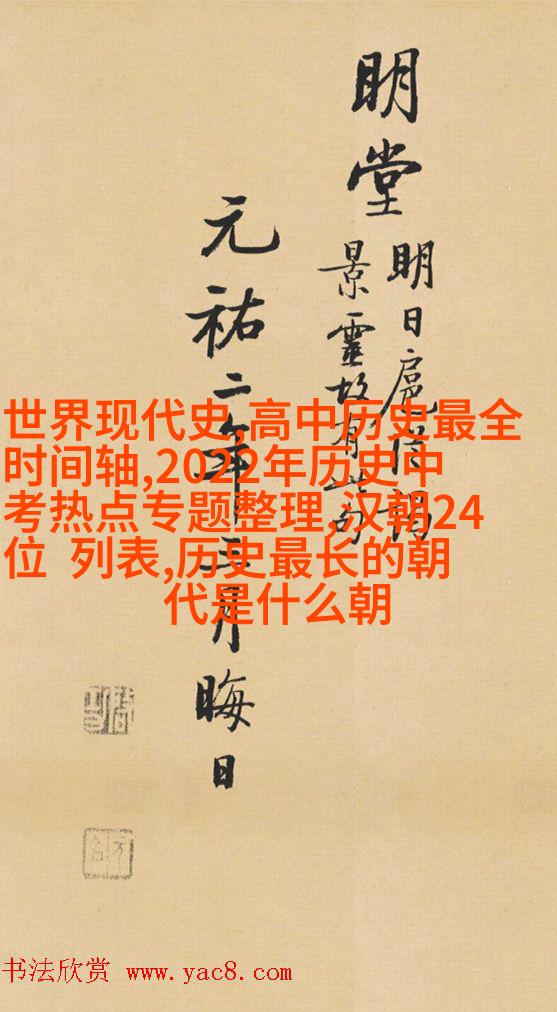 明堂
明日扈從謁
景靈故有此句
元祐二年三月晦日
世界现代史,高中历史最全
时间轴,2022年历史中
考热点专题整理,汉朝24
位 列表,历史最长的朝
代是什么朝
书法欣赏 www.yac8.com